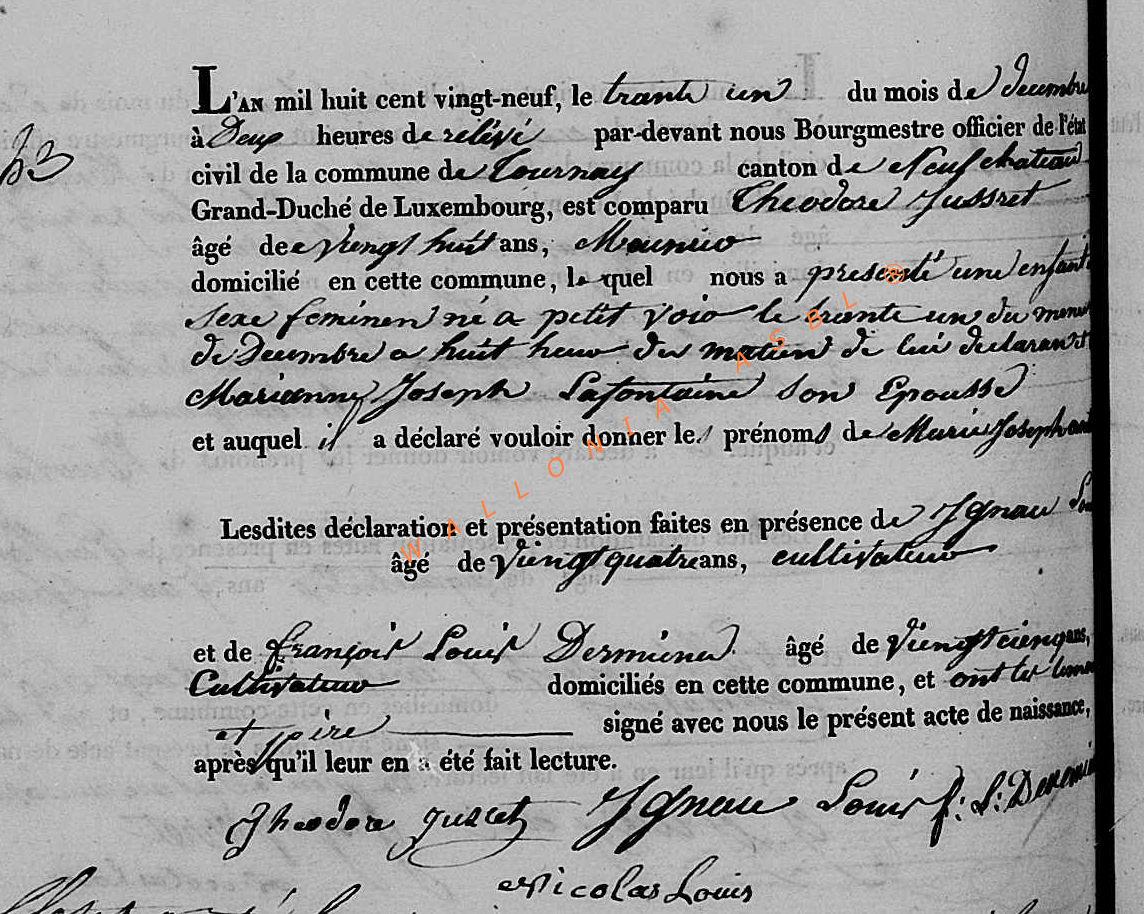 L'AN mil huit cent vingt-neuf, le trante un du mois de decembre
à Deux heures de relévé par-devant nous Bourgmestre officier de l'état
civil de la commune de Tournay canton de Neufchateau
Grand-Duché de Luxembourg, est comparu Theodore Jussret
âgé de Vingt huit ans, Meunier
domicilié en cette commune, le quel nous a presenté une enfant
sexe feminen né a petit Voir le trante un du
de Decembre a huit heur du matin de lui declarant
Marianne Joseph Lafontaine son Epousse
et auquel il a déclaré vouloir donner les prénoms de Marie
Lesdites déclaration et présentation faites en présence de Ignace
âgé de Vingt quatre ans, cultivateur
et de françois Louis Dermience âgé de Vingt cienq ans,
Cultivateur domiciliés en cette commune, et ont les
et pére signé avec nous le présent acte de naissance,
après qu'il leur en a été fait lecture.
Theodore Ignace Louis f: L:
Nicolas Louis
WALLONIA ASBL ©